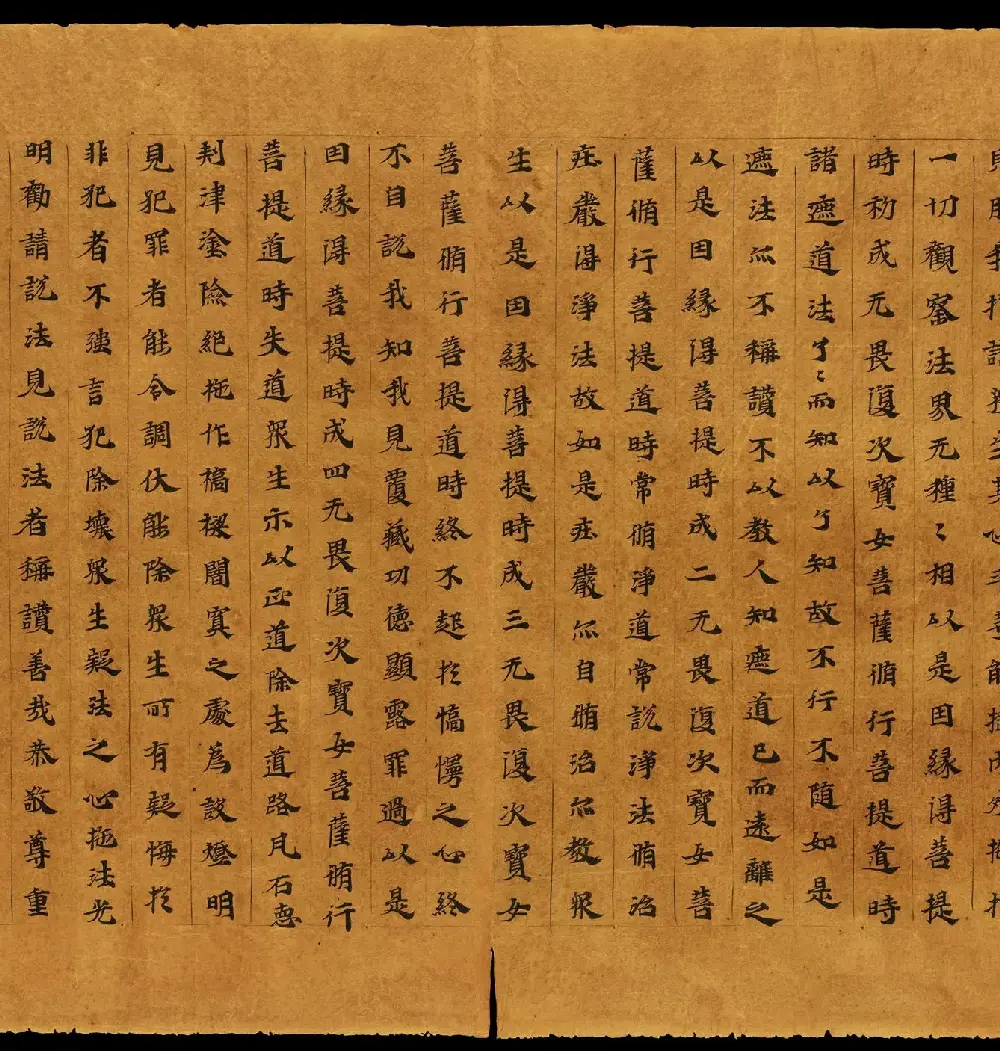 一切觀察法界无種〻相以是因緣得菩提
時初成无畏復次寶女菩薩脩行菩提道時
諸遮道法了〻而知以了知故不行不随如是
遮法亦不稱讃不以教人知遮道已而遠離之
以是因緣得菩提時成二无畏復次寶女菩
薩脩行菩提道時常脩淨道常說淨法脩治
莊嚴得淨法故如是莊嚴亦自脩治亦教眾
生以是因緣得菩提時成三无畏復次寶女
菩薩脩行菩提道時終不起於憍慢之心終
不自說我知我見覆藏功德顯露罪過以是
因緣得菩提時成四无畏復次寶女菩薩脩行
菩提道時失道眾生示以正道除去道路瓦石惡
刾津塗險絕施作橋樑闇冥之處為設燈明
見犯罪者能令調伏能除眾生所有疑悔於
非犯者不强言犯除壞眾生疑法之心施法光
明勸請說法見說法者稱讃善哉恭敬尊重